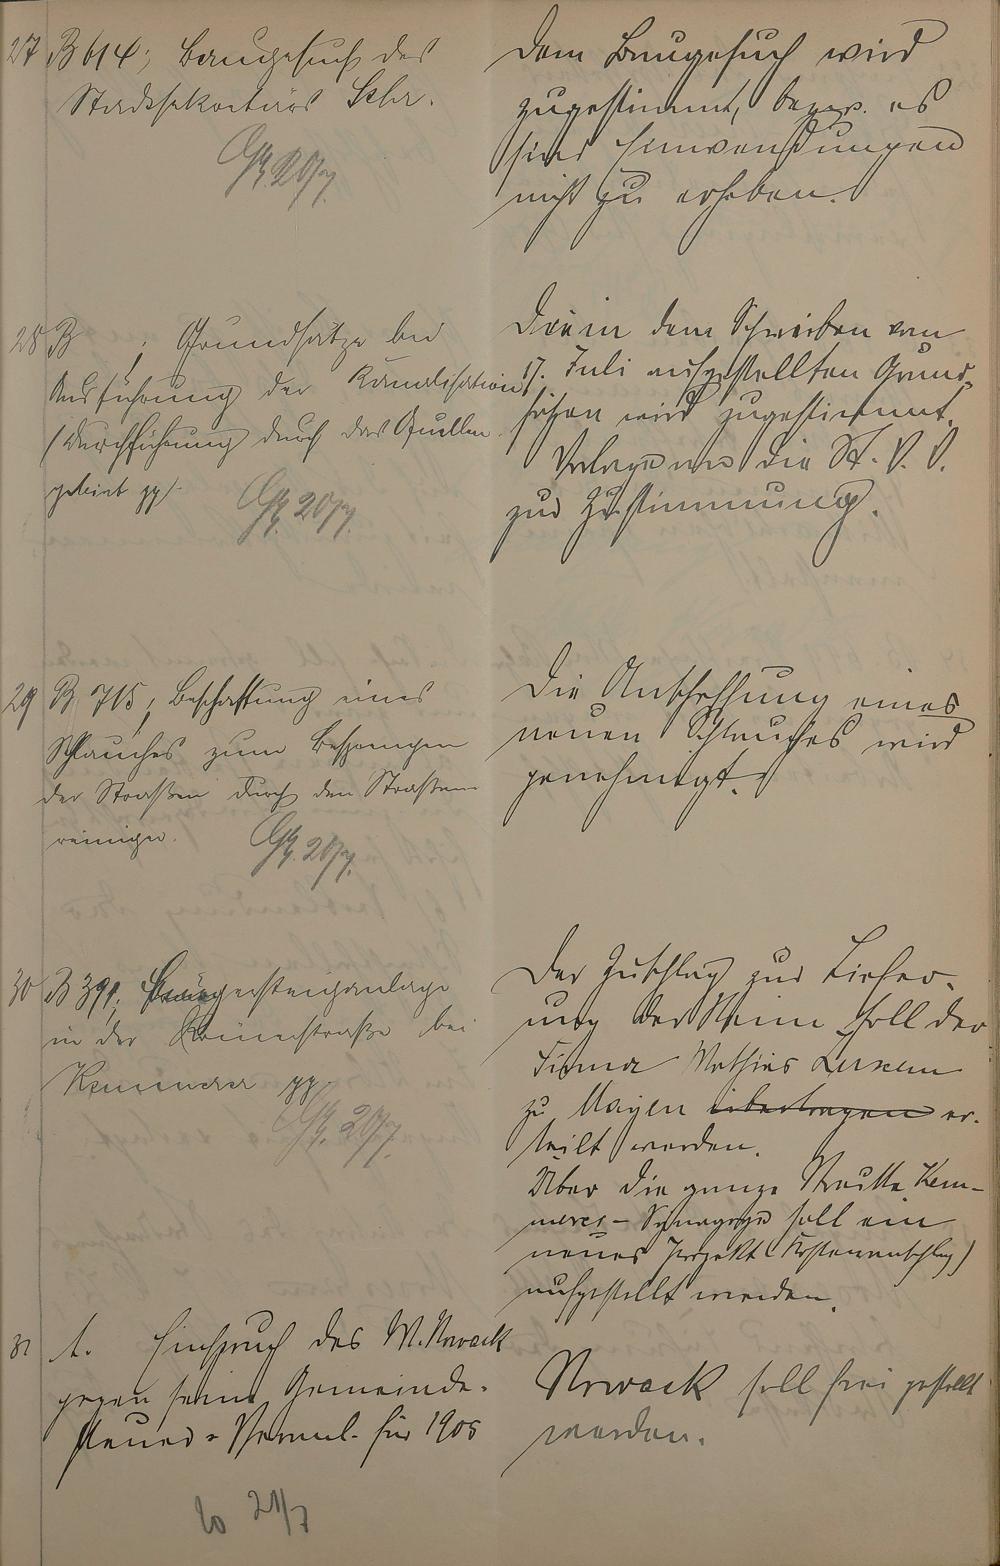 27 B 614; Baugesuch des
Stadtsekretärs Sehr.
20/7.
Dem Baugesuch wird
zugestimmt, bezw. es
sind Einwendungen
nicht zu erheben.
28 B ; Grundsätze bei
Ausführung der Kanalisation
(Durchführung durch das Quellen-
gebiet pp).
20/7.
Den in dem Schreiben vom
17. Juli aufgestellten Grund-
sätzen wird zugestimmt.
Vorlage an die St. V. V.
zur Zustimmung.
29 B 715; Beschaffung eines
Schlauches zum Besprengen
der Straßen durch den Straßen-
reiniger.
20/7.
Die Anschaffung eines
neuen Schlauches wird
genehmigt.
30 B 391; Bürgersteiganlage
in der straße bei
Kemmerer pp.
20/7.
Der Zuschlag zur Liefer-
ung der Steine soll der
Firma Mathias Luxem
zu Mayen übertragen er-
teilt werden.
Über die ganze Strecke Kem-
merer - Synagoge soll ein
neues Projekt (Kostenanschlag)
aufgestellt werden.
31 A. Einspruch des M. Nowack
gegen seine Gemeinde-
steuer-Veranl. für 1905
21/7
Nowack soll frei gestellt
werden.